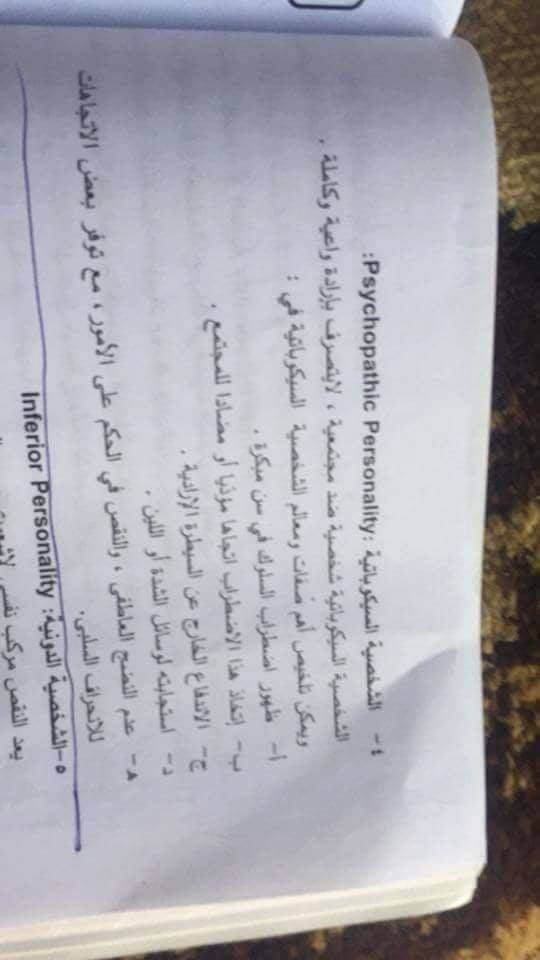 ٤- الشخصية السيكوباتية :Psychopathic Personality:
الشخصية السيكوباتية شخصية ضد مجتمعية ، لايتصرف بإرادة واعية وكاملة .
ويمكن تلخيص أهم صفات ومعالم الشخصية السيكوباتية في :
أ- ظهور اضطراب السلوك في سن مبكرة .
ب- إتخاذ هذا الاضطراب اتجاها مؤذيا أو مضادا للمجتمع .
ج- الاندفاع الخارج عن السيطرة الإرادية .
د- استجابته لوسائل الشدة أو اللين .
هـ- عدم النضج العاطفى ، والنقص في الحكم على الأمور ، مع توفر بعض الاتجاهات
للانحراف السلبى.
٥-الشخصية الدونية: Inferior Personality
يعد النقص مركب نفسي